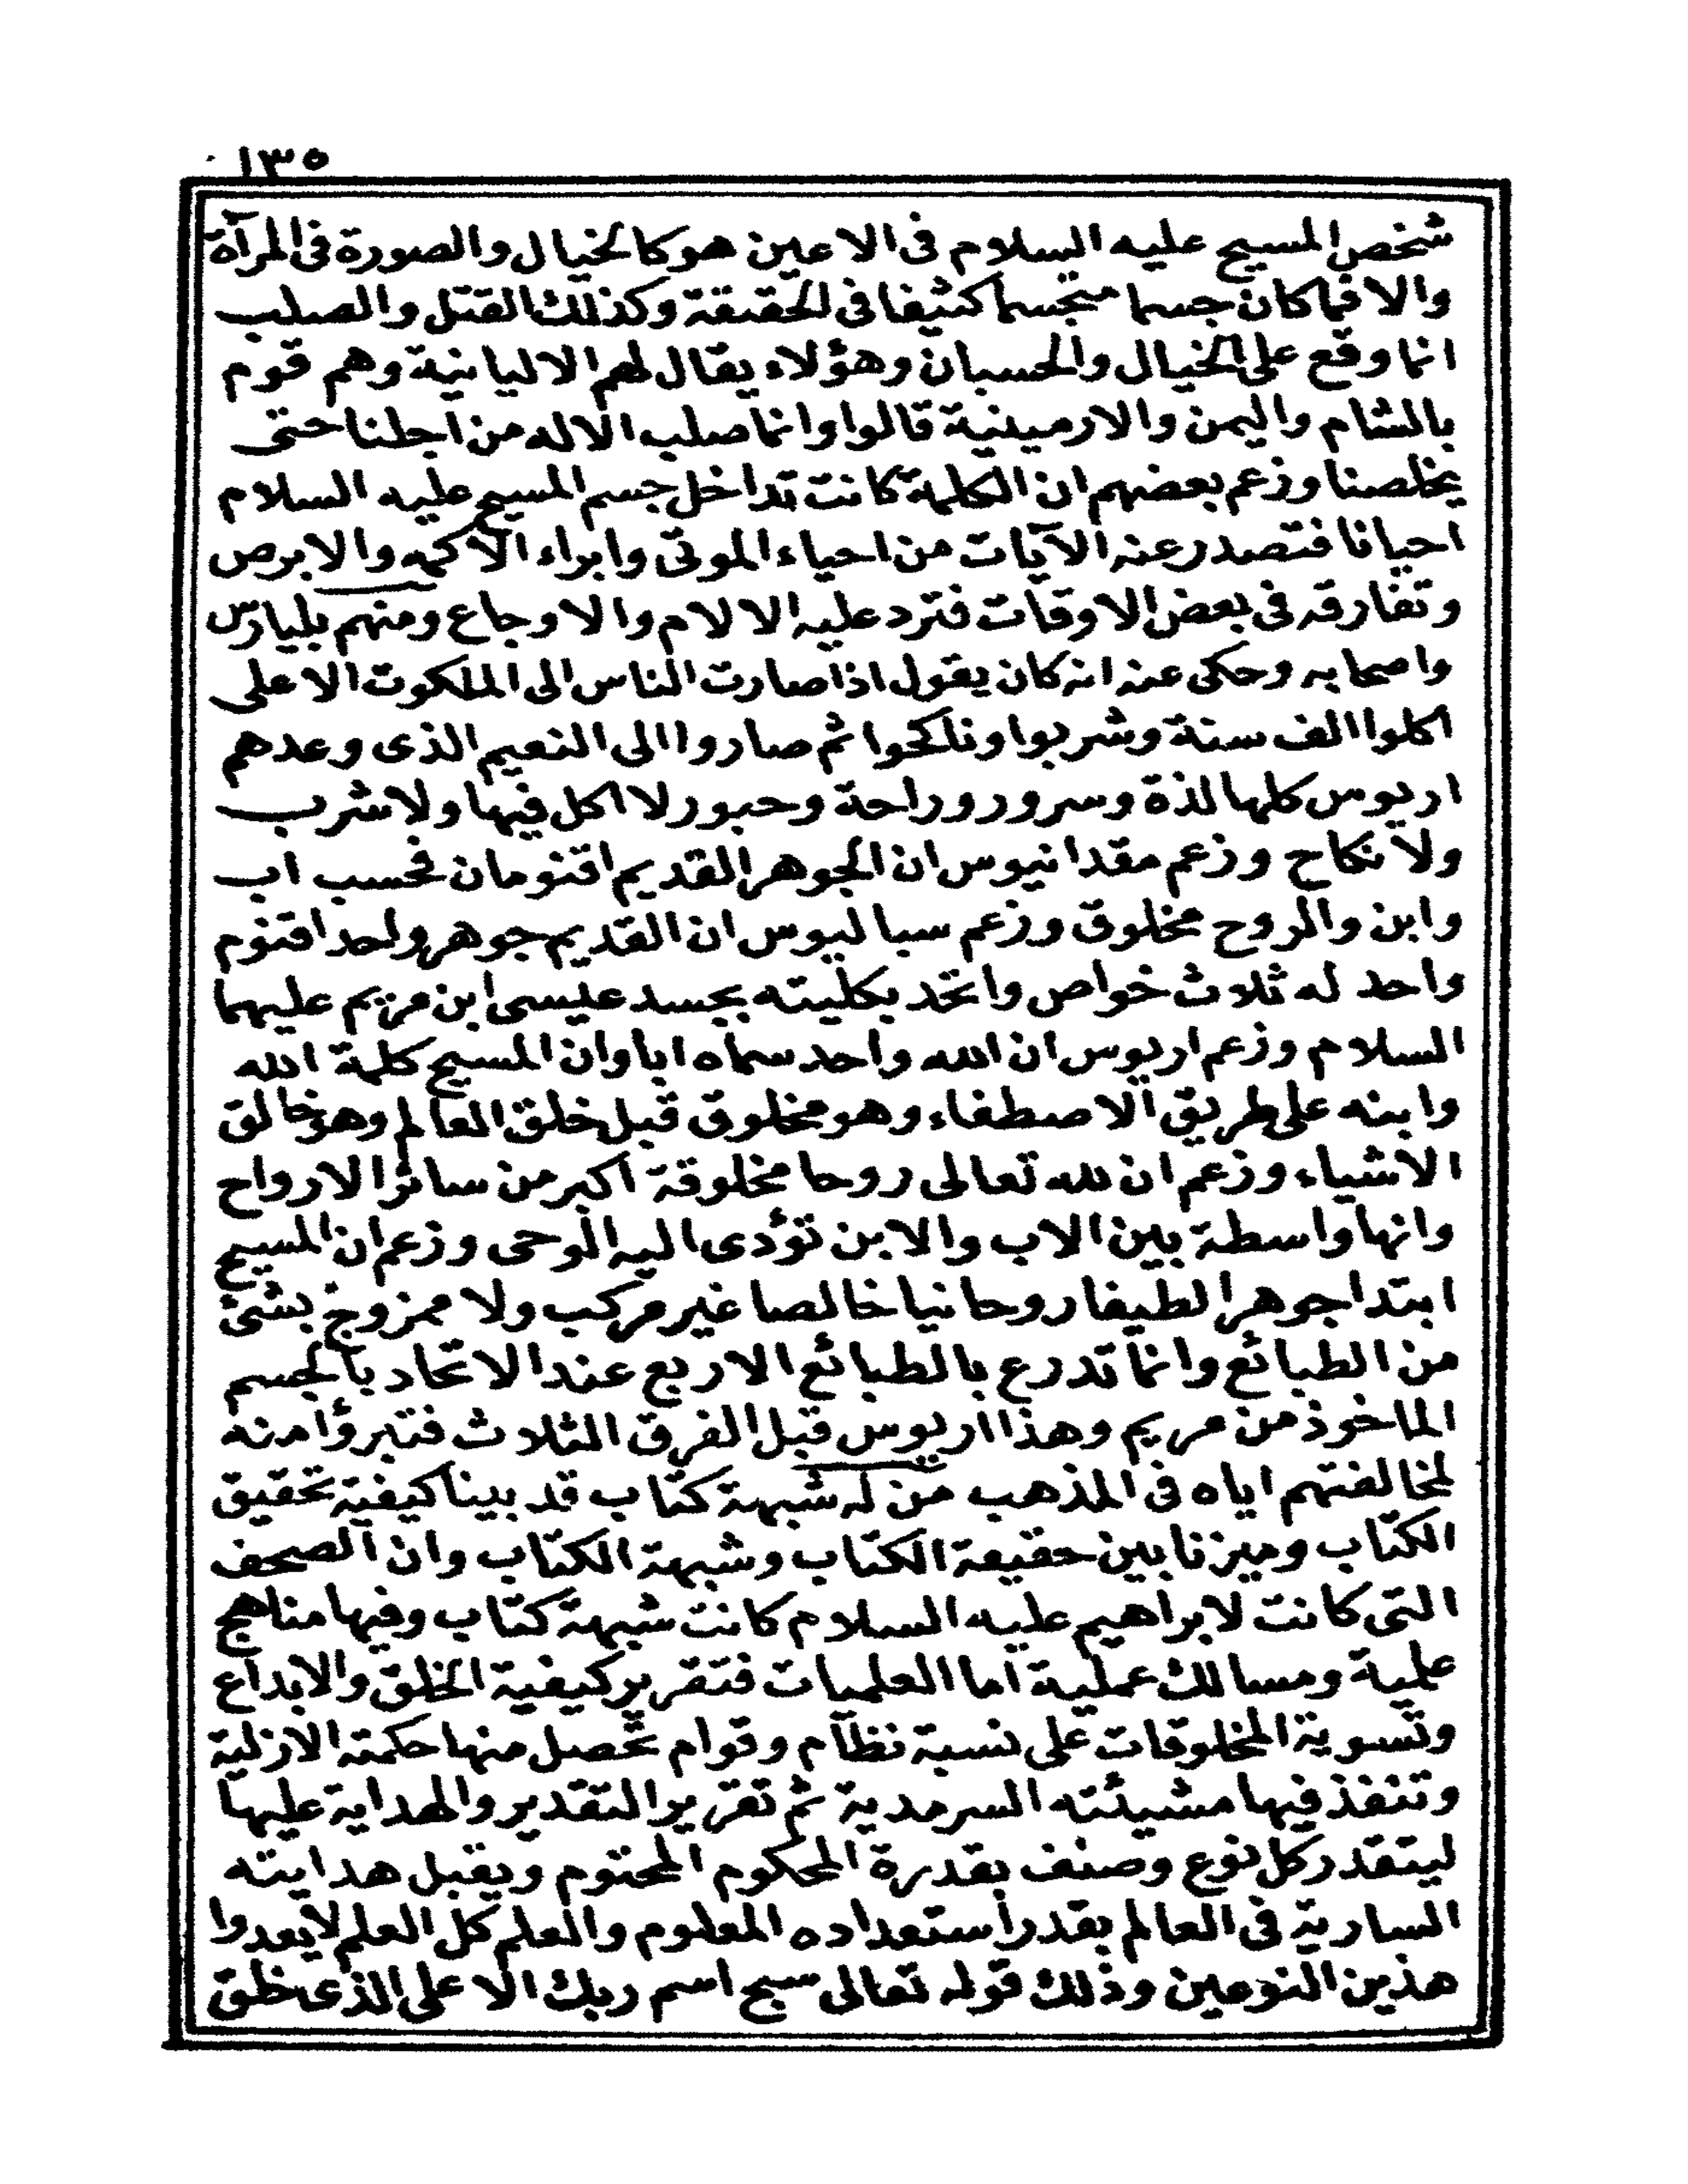 ١٣٥
شخص المسيح عليه السلام فى الاعين هو كالخيال والصورة فى المرآة
والا فما كان جسما متجسما كثيفا فى الحقيقة وكذلك القتل والصلب
انما وقع على الخيال والحسبان وهؤلاء يقال لهم الاليانية وهم قوم
بالشام واليمن والارمينية قالوا وانما صلب الاله من اجلنا حتى
يخلصنا وزعم بعضهم ان الكلمة كانت تداخل جسم المسيح عليه السلام
احيانا فتصدر عنه الآيات من احياء الموتى وابراء الاكمه والابرص
وتفارقه فى بعض الاوقات فترد عليه الالام والاوجاع ومنهم بليارس
واصحابه وحكى عنه انه كان يقول اذا صارت الناس الى الملكوت الاعلى
اكلوا الف سنة وشربوا وناكحوا ثم صاروا الى النعيم الذى وعدهم
اريوس كلها لذة وسرور وراحة وحبور لا اكل فيها ولا شرب
ولا نكاح وزعم مقدانيوس ان الجوهر القديم اقنومان فحسب اب
وابن والروح مخلوق وزعم سباليوس ان القديم جوهر واحد اقنوم
واحد له ثلاث خواص واتخد بكليته بجسد عيسى ابن مريم عليهما
السلام وزعم اريوس ان الله واحد سماه ابا وان المسيح كلمة الله
وابنه على طريق الاصطفاء وهو مخلوق قبل خلق العالم وهو خالق
الاشياء وزعم ان لله تعالى روحا مخلوقة اكبر من سائر الارواح
وانها واسطة بين الاب والابن تؤدى اليه الوحى وزعم ان المسيح
ابتدا جوهرا لطيفا روحانيا خالصا غير مركب ولا ممزوج بشئ
من الطبائع وانما تدرع بالطبائع الاربع عند الاتحاد بالجسم
الماخوذ من مريم وهذا اريوس قبل الفرق الثلاث فتبرؤا منه
لمخالفتهم اياه فى المذهب من له شبهة كتاب قد بينا كيفية تحقيق
الكتاب وميزنا بين حقيقة الكتاب وشبهة الكتاب وان الصحف
التى كانت لابراهيم عليه السلام كانت شبهة كتاب وفيها مناهج
علمية ومسالك عملية اما العلميات فتقرير كيفية الخلق والابداع
وتسوية المخلوقات على نسبة نظام وقوام تحصل منها حكمته الازلية
وتنفذ فيها مشيئته السرمدية ثم تقرير التقدير والهداية عليها
ليتقدر كل نوع وصنف بقدرة المحكوم المحتوم ويقبل هدايته
السارية فى العالم بقدر استعداده المعلوم والعلم كل العلم لا يعدوا
هذين النوعين وذلك قوله تعالى سبح اسم ربك الاعلى الذى خلق